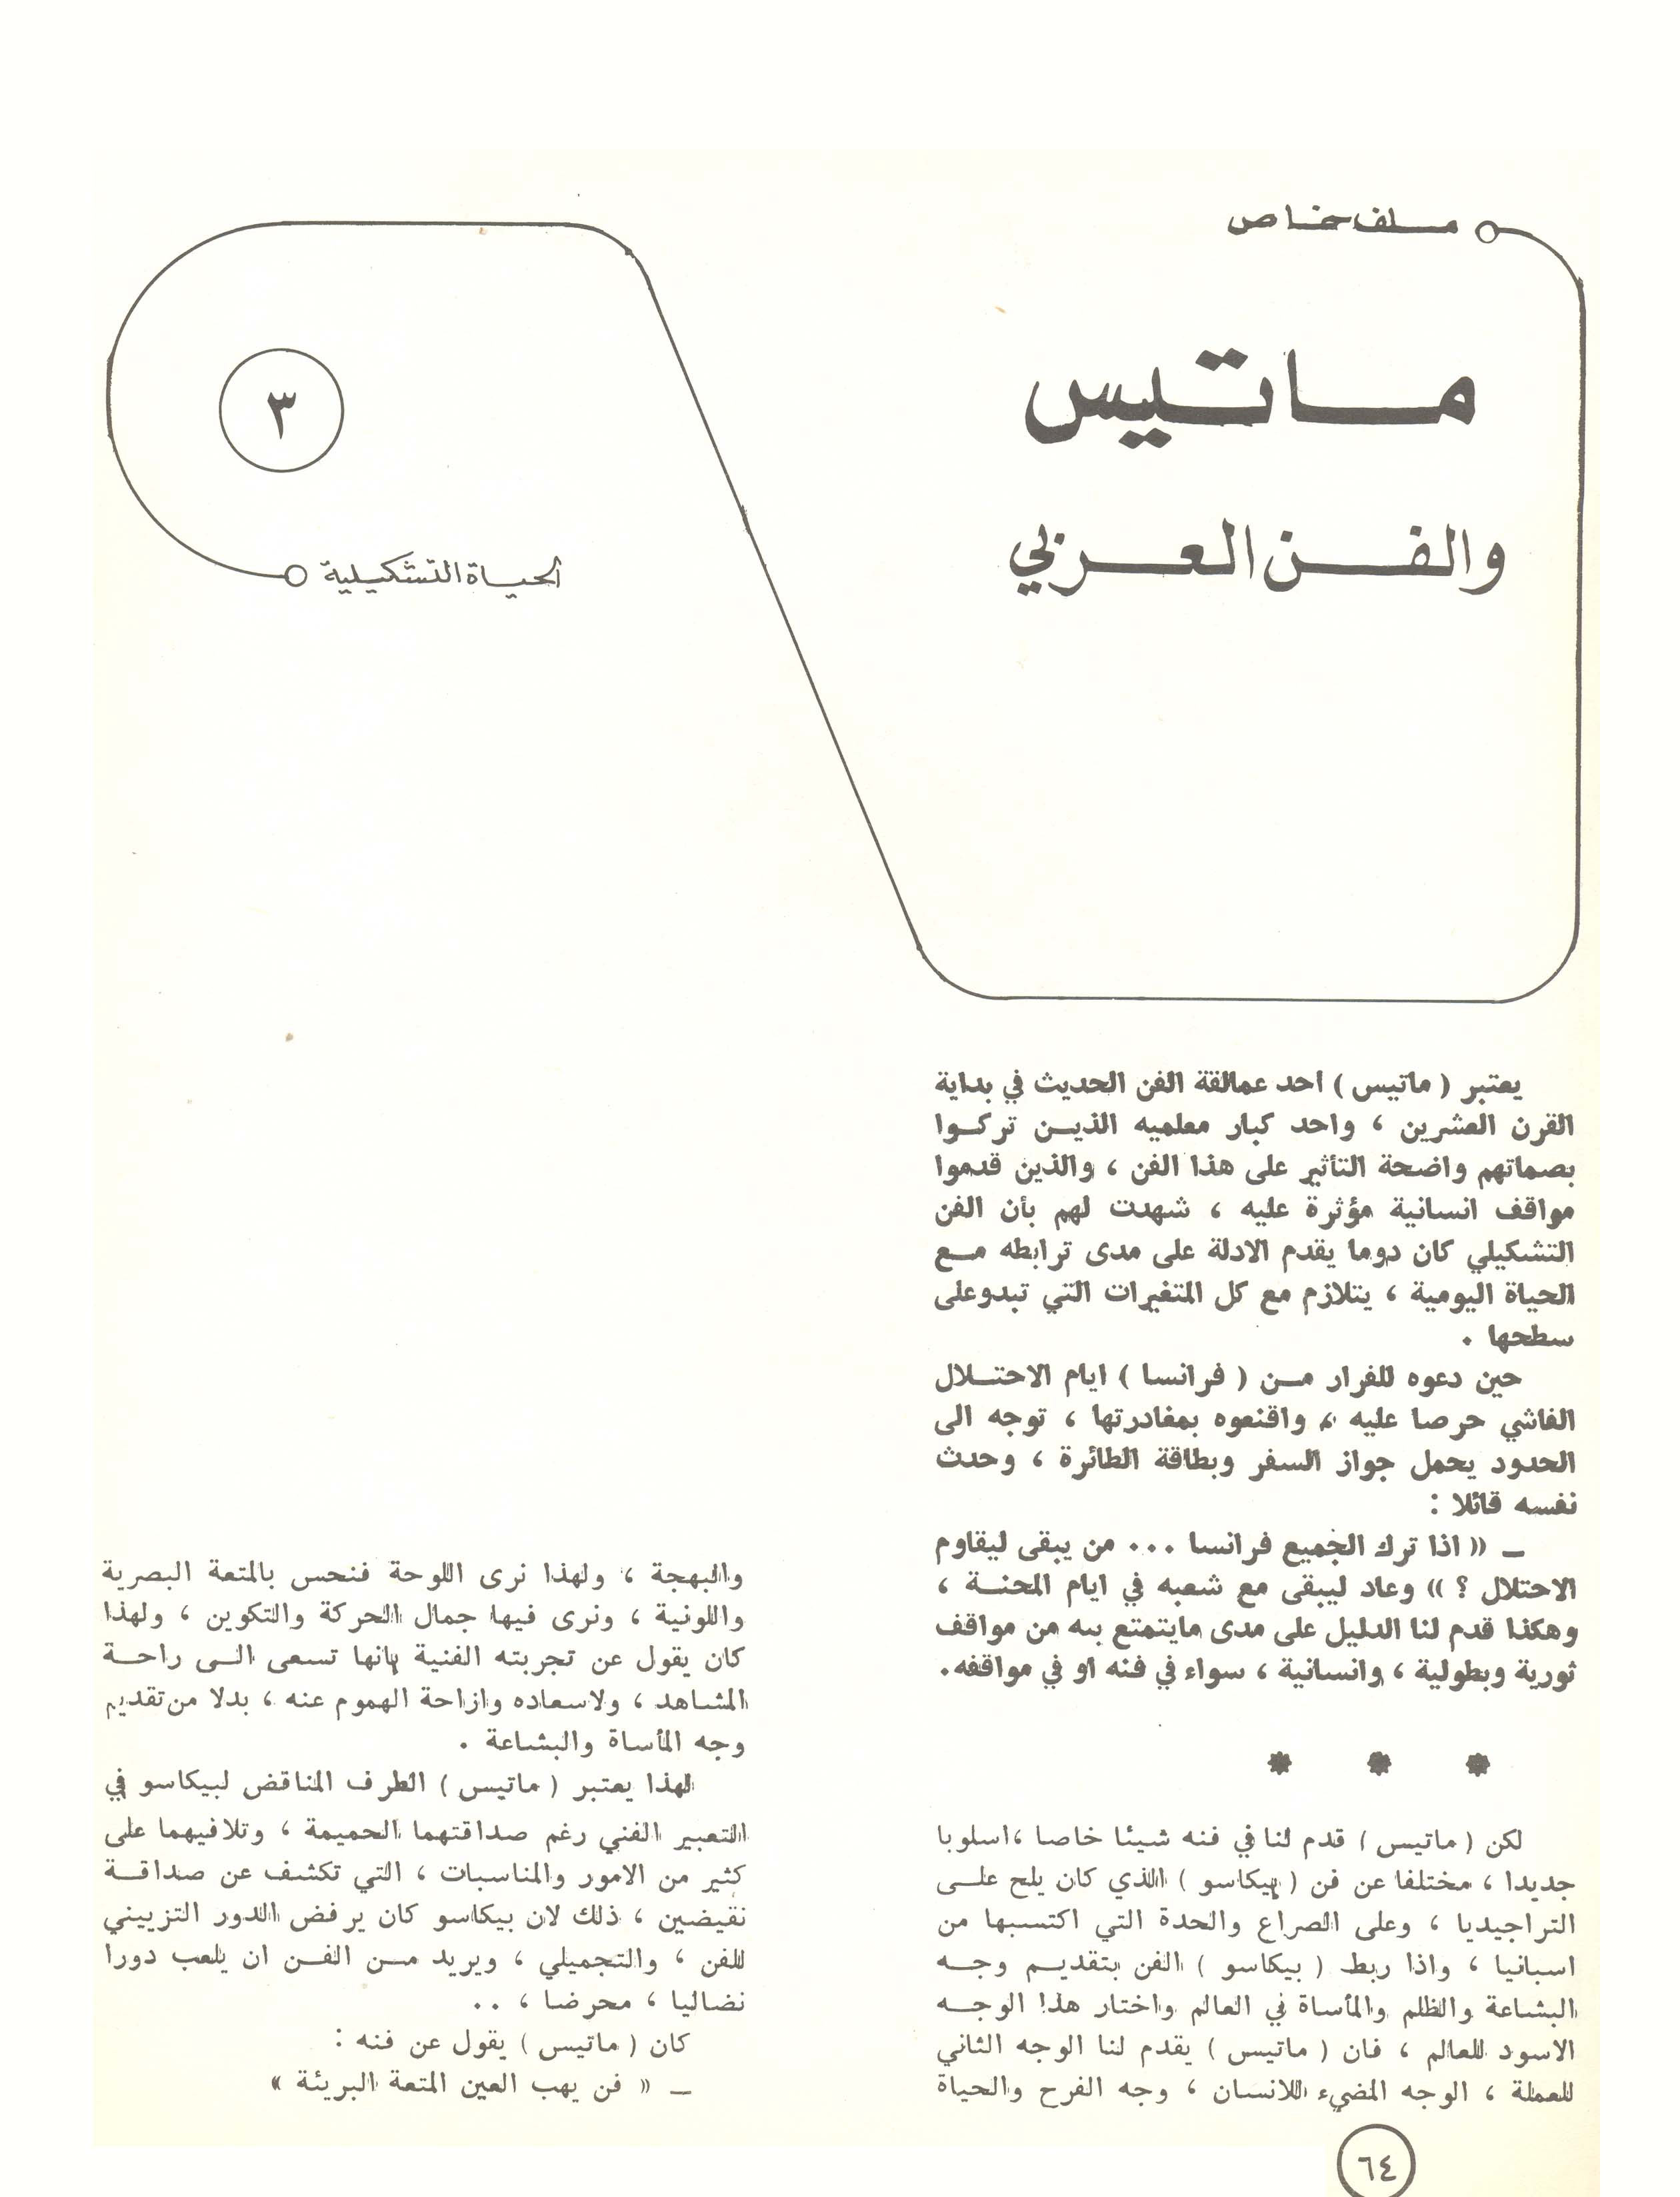 ملف خاص
ماتيس
والفن العربي
٣
الحياة التشكيلية
يعتبر ( ماتيس ) احد عمالقة الفن الحديث في بداية
القرن العشرين ، واحد كبار معلميه الذين تركوا
بصماتهم واضحة التأثير على هذا الفن ، والذين قدموا
مواقف انسانية مؤثرة عليه ، شهدت لهم بأن الفن
التشكيلي كان دوما يقدم الادلة على مدى ترابطه مع
الحياة اليومية ، يتلازم مع كل المتغيرات التي تبدو على
سطحها .
حين دعوه للفرار من ( فرانسا ) ايام الاحتلال
الفاشي حرصا عليه ، واقنعوه بمغادرتها ، توجه الى
الحدود يحمل جواز السفر وبطاقة الطائرة ، وحدث
نفسه قائلا :
ـ « اذا ترك الجميع فرانسا ... من يبقى ليقاوم
الاحتلال ؟ » وعاد ليبقى مع شعبه في ايام المحنة ،
وهكذا قدم لنا الدليل على مدى مايتمتع به من مواقف
ثورية وبطولية ، وانسانية ، سواء في فنه او في مواقفه.
* * *
لكن ( ماتيس ) قدم لنا في فنه شيئا خاصا ،اسلوبا
جديدا ، مختلفا عن فن ( بيكاسو ) الذي كان يلح على
التراجيديا ، وعلى الصراع والحدة التي اكتسبها من
اسبانيا ، واذا ربط ( بيكاسو ) الفن بتقديم وجه
البشاعة والظلم والمأساة في العالم واختار هذا الوجه
الاسود للعالم ، فان ( ماتيس ) يقدم لنا الوجه الثاني
للعملة ، الوجه المضيء للانسان ، وجه الفرح والحياة
والبهجة ، ولهذا نرى اللوحة فنحس بالمتعة البصرية
واللونية ، ونرى فيها جمال الحركة والتكوين ، ولهذا
كان يقول عن تجربته الفنية بانها تسعى الى راحة
المشاهد ، ولاسعاده وازاحة الهموم عنه ، بدلا من تقديم
وجه المأساة والبشاعة .
لهذا يعتبر ( ماتيس ) الطرف المناقض لبيكاسو في
التعبير الفني رغم صداقتهما الحميمة ، وتلافيهما على
كثير من الامور والمناسبات ، التي تكشف عن صداقة
نقيضين ، ذلك لان بيكاسو كان يرفض الدور التزييني
للفن ، والتجميلي ، ويريد من الفن ان يلعب دورا
نضاليا ، محرضا ، ..
كان ( ماتيس ) يقول عن فنه :
ـ « فن يهب العين المتعة البريئة »
٦٤